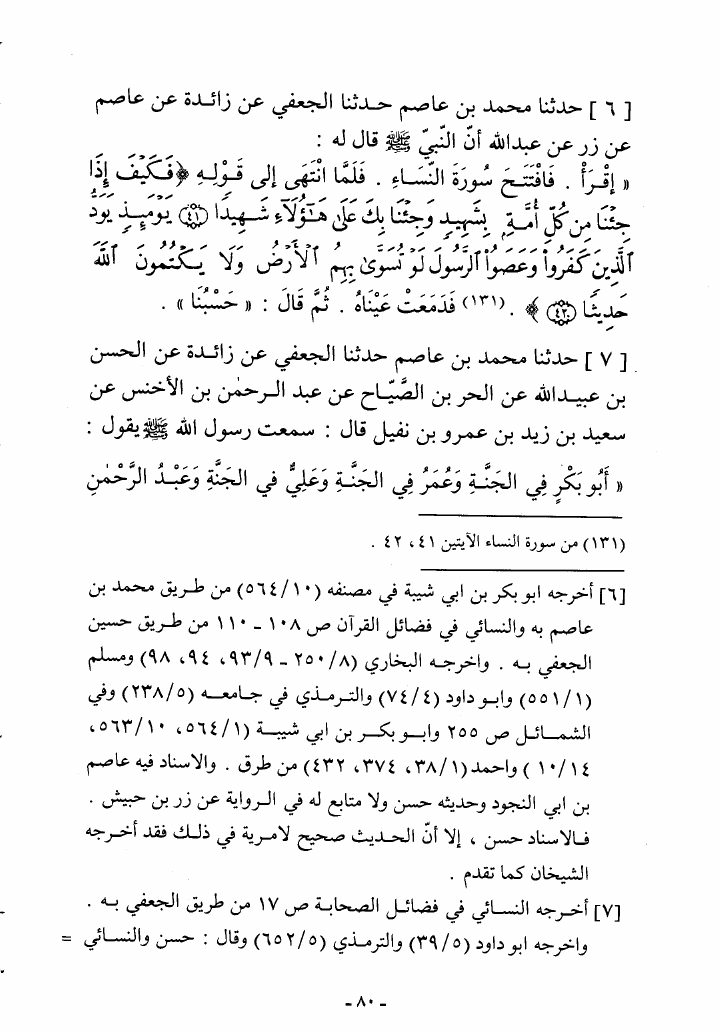 [ ٦ ] حدثنا محمد بن عاصم حـدثنا الجعفي عن زائـدة عن عاصم
عن زر عن عبدالله أنّ النّبيّ ﷺ قال له :
« إِقْـرَأْ . فَافْتَتَـحَ سُورَةَ النِّسَـاءِ . فَلَمَّا انْتَهَى إلى قَـوْلِـهِ ﴿فَكَيْفَ إِذَا
جِئْنَا مِن كُلِّ أُمَّةٍ بِشَهِيدٍ وَجِئْنَا بِكَ عَلَىٰ هَٰٓؤُلَآءِ شَهِيدًا ٤١ يَوْمَئِذٍ يَوَدُّ
ٱلَّذِينَ كَفَرُوا۟ وَعَصَوُا۟ ٱلرَّسُولَ لَوْ تُسَوَّىٰ بِهِمُ ٱلْأَرْضُ وَلَا يَكْتُمُونَ ٱللَّهَ
حَدِيثًا ٤٢ ﴾ . (١٣١) فَدَمَعَتْ عَيْنَاهُ . ثُمَّ قَالَ : « حَسْبُنَا » .
[ ٧ ] حدثنا محمـد بن عاصـم حدثنا الجعفي عن زائـدة عن الحسن
بن عبيـدالله عن الحر بن الصَّيّـاح عن عبد الـرحمٰن بن الأخنس عن
سعيد بن زيـد بن عمـرو بن نفيل قال : سمعت رسول الله ﷺ يقول :
« أَبُو بَكْرٍ فِي الجَنَّـةِ وَعُمَرُ فِي الجَنَّـةِ وَعَلِيٌّ في الجَنَّةِ وَعَبْـدُ الرَّحْمٰنِ
(١٣١) من سورة النساء الآيتين ٤١ ، ٤٢ .
[٦] أخرجه ابو بكر بن ابي شيبة في مصنفه (٥٦٤/١٠) من طـريق محمد بن
عاصم به والنسائي في فضائل القرآن ص ١٠٨ ـ ١١٠ من طـريق حسين
الجعفي بـه . واخرجـه البخاري (٢٥٠/٨ ـ ٩٣/٩، ٩٤، ٩٨) ومسلم
(٥٥١/١) وابـو داود (٧٤/٤) والتـرمـذي في جـامعــه (٢٣٨/٥) وفي
الشمـائـل ص ٢٥٥ وابــو بكــر بن ابي شيبــة (٥٦٤/١، ٥٦٣/١٠،
١٠/١٤ ) واحمد (٣٨/١، ٣٧٤، ٤٣٢) من طرق . والاسناد فيه عاصم
بن ابي النجود وحديثه حسن ولا متابع له في الـرواية عن زر بن حبيش .
فـالاسناد حسن ، إلا أنّ الحـديث صحيح لامـرية في ذلـك فقد أخـرجه
الشيخان كما تقدم .
[٧] أخـرجه النسـائي في فضائـل الصحابـة ص ١٧ من طريق الجعفي بـه .
واخرجه ابو داود (٣٩/٥) والترمـذي (٦٥٢/٥) وقال : حسن والنسـائي =
- ٨٠ -